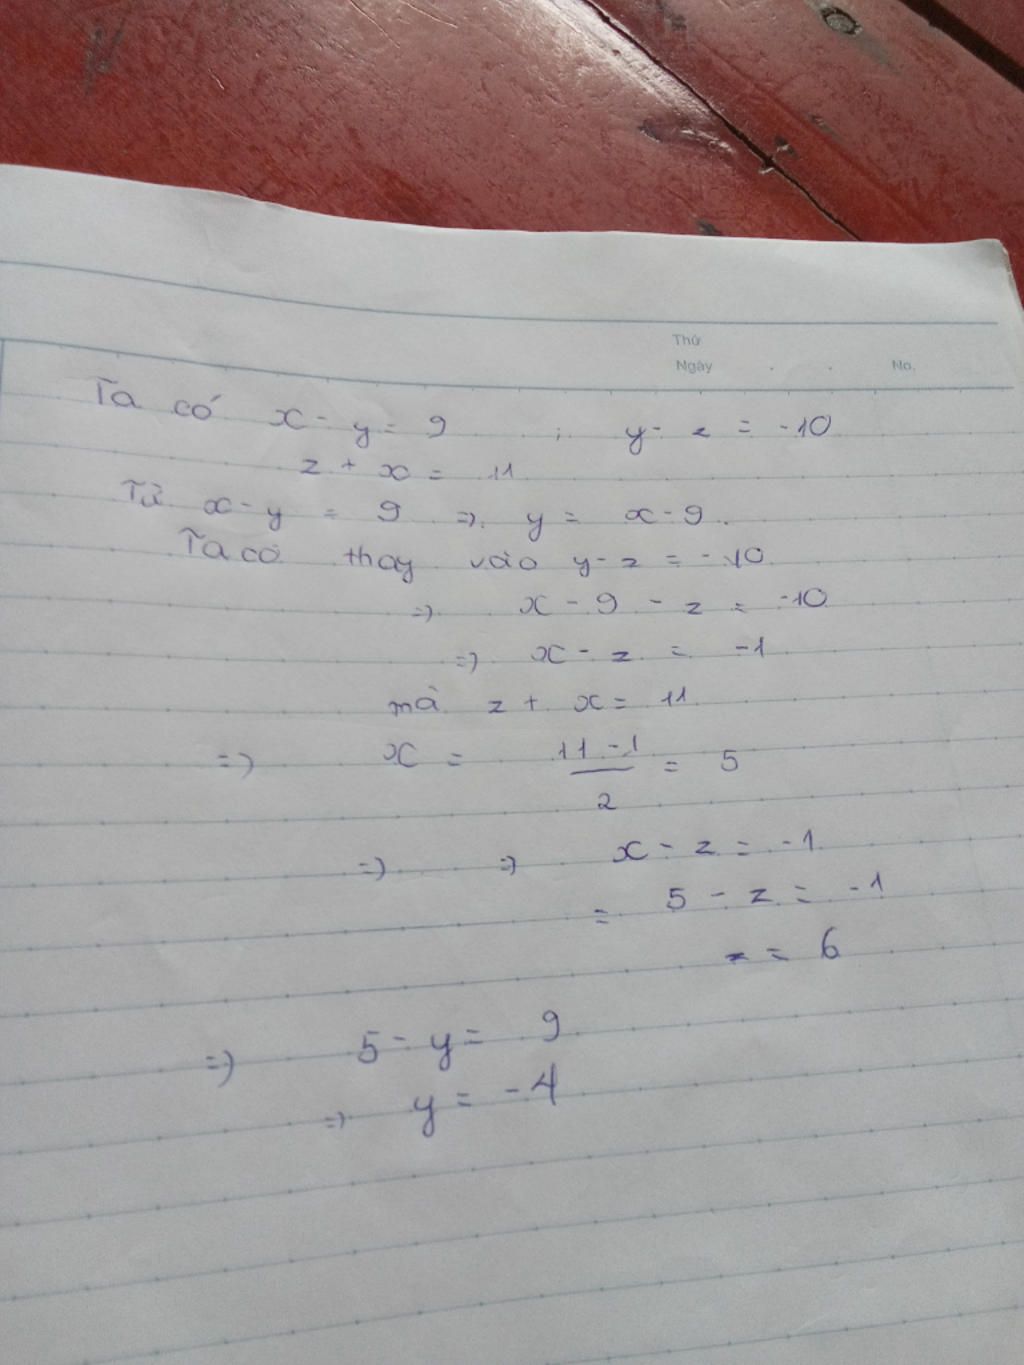 Thứ
Ngày . . No.
Ta có x - y = 9 ; y - z = -10
z + x = 11
Từ x - y = 9 => y = x - 9.
Ta có thay vào y - z = -10
=> x - 9 - z = -10
=> x - z = -1
mà z + x = 11
=> x = \frac{11 - 1}{2} = 5
=> => x - z = -1
= 5 - z = -1
z = 6
=> 5 - y = 9
=> y = -4